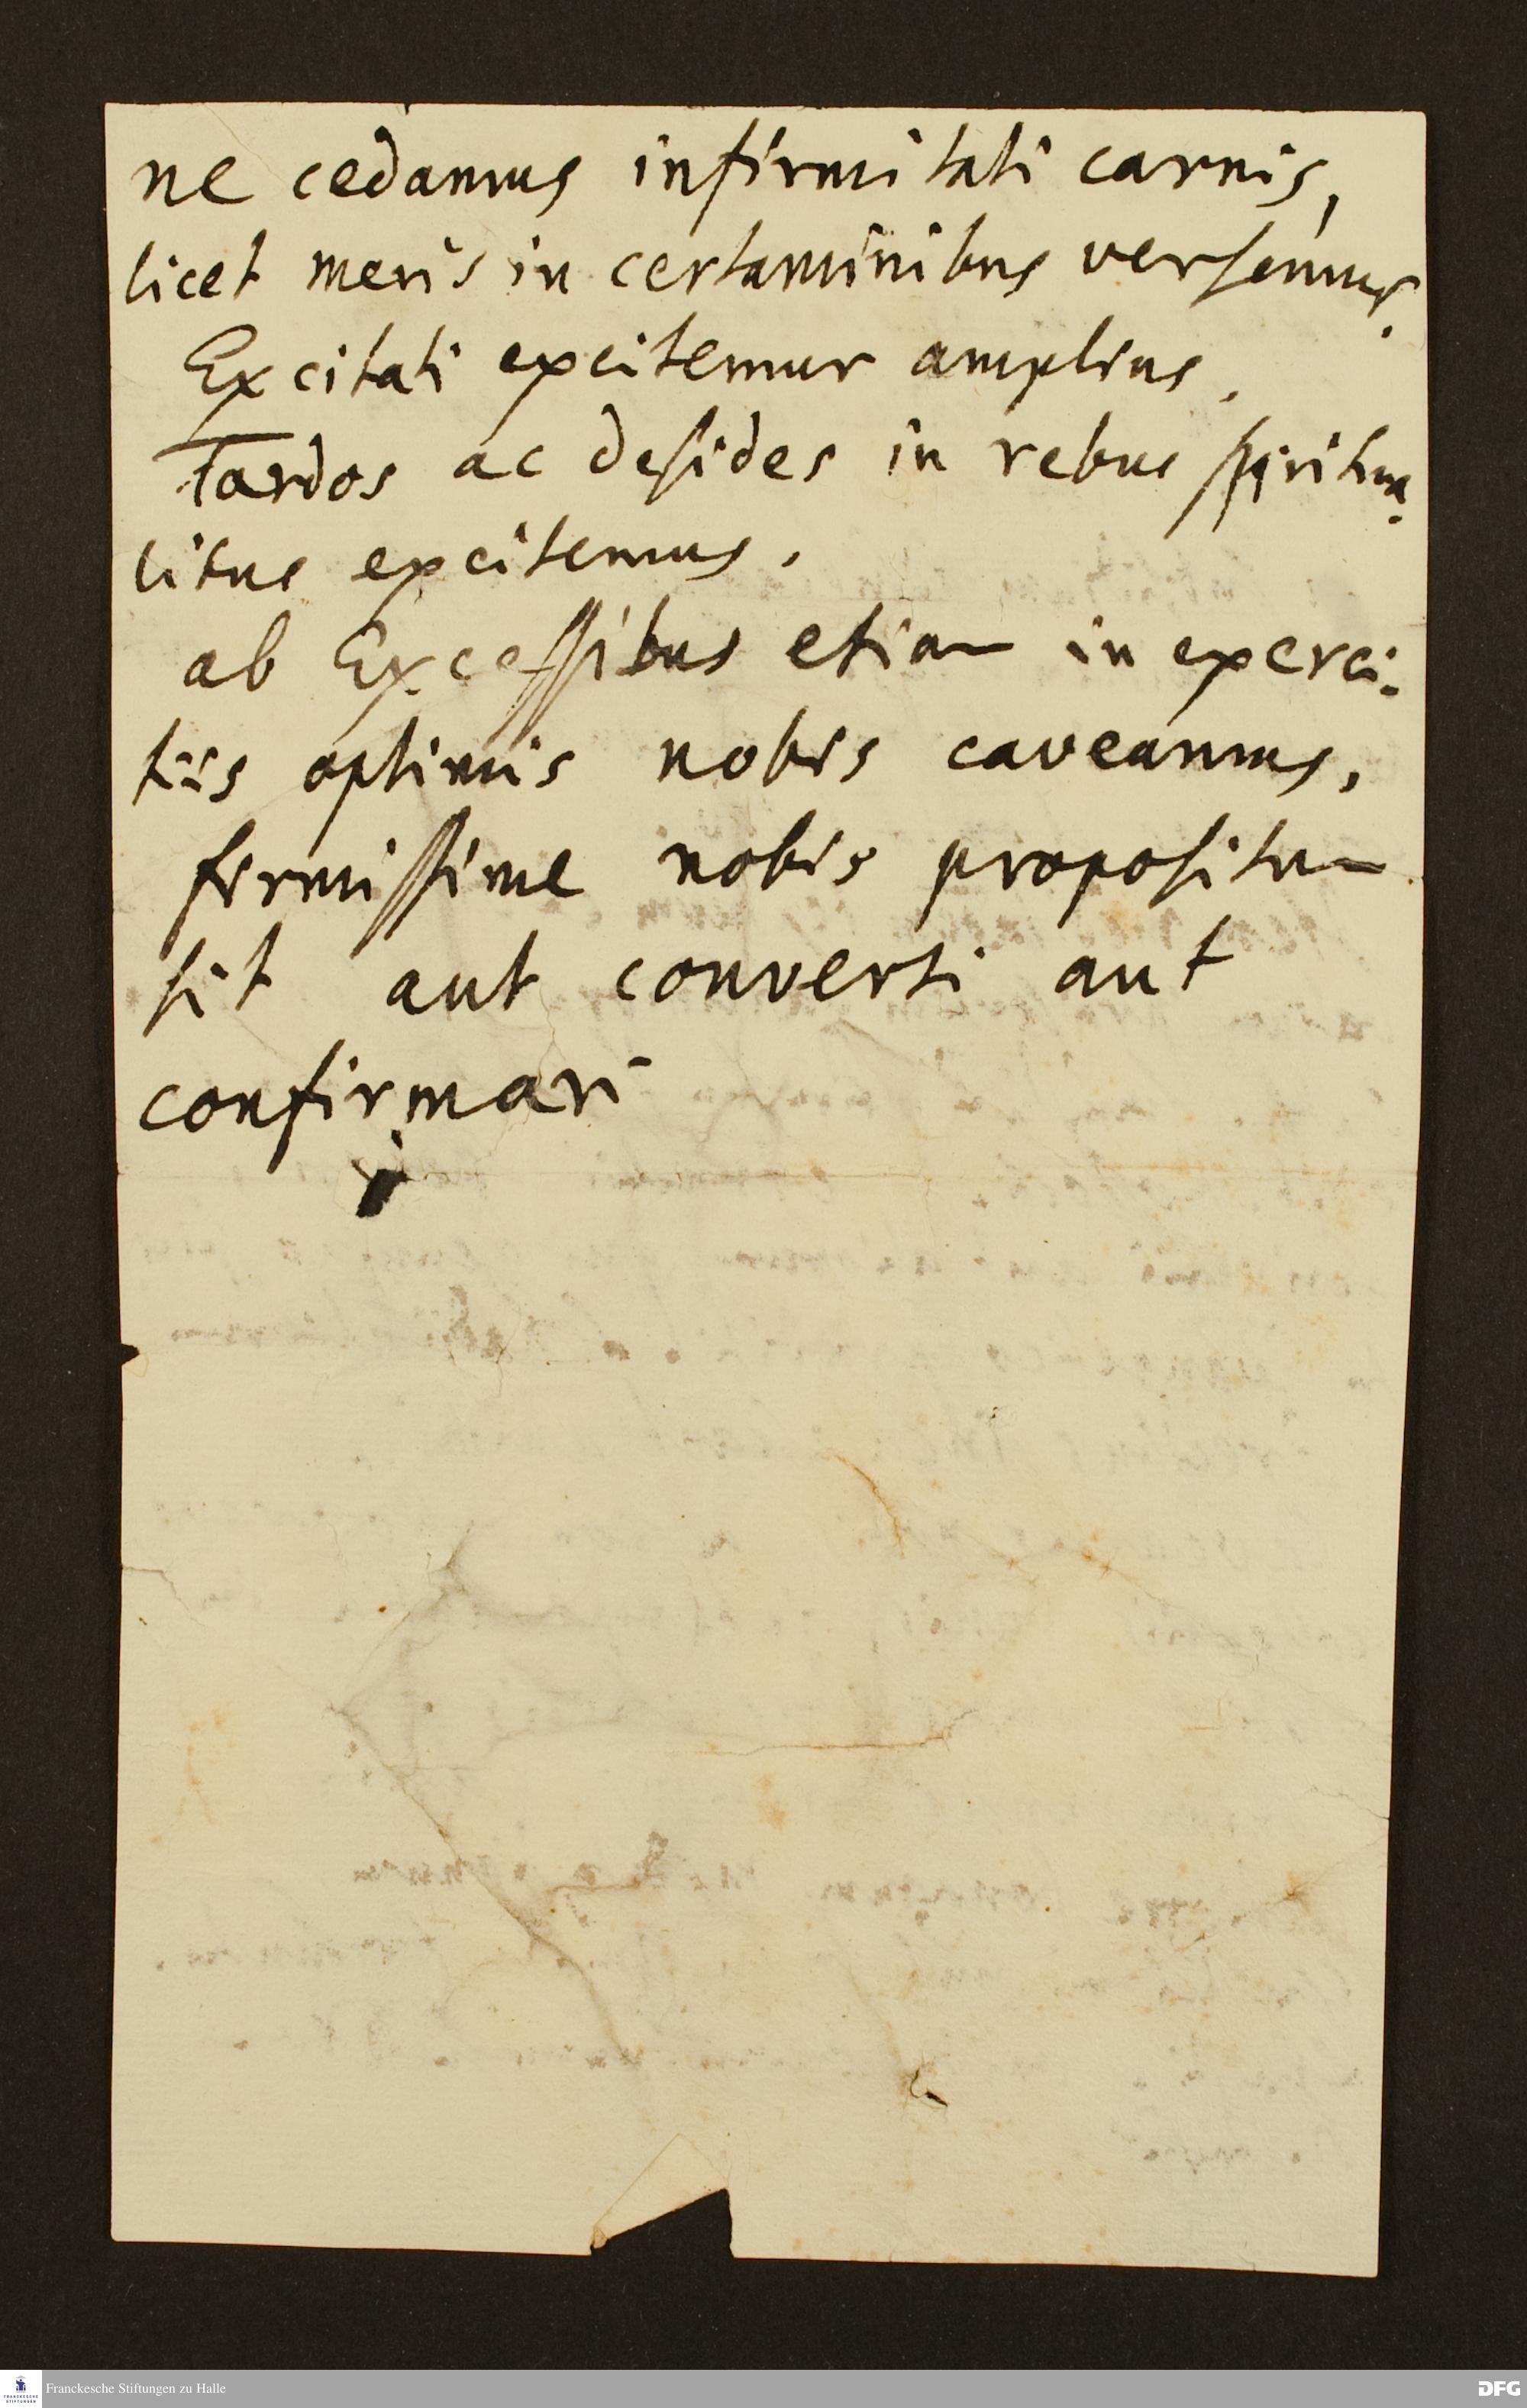 ne cedamus infirmitati carnis,
licet meris in certaminibus versemur.
Excitati excitemur amplius.
Tardos ac desides in rebus spiritua-
litus excitemus.
ab Excessibus etiam in exerci-
tiis optimis nobis caveamus,
firmissime nobis propositum
sit aut converti aut
confirmari
Franckesche Stiftungen zu Halle
DFG